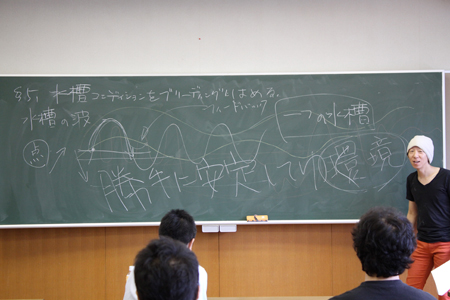 水槽コンディションをブリーディングとはめる。
フィードバック
水槽の波
一つの水槽
点
勝手に安定してり環境